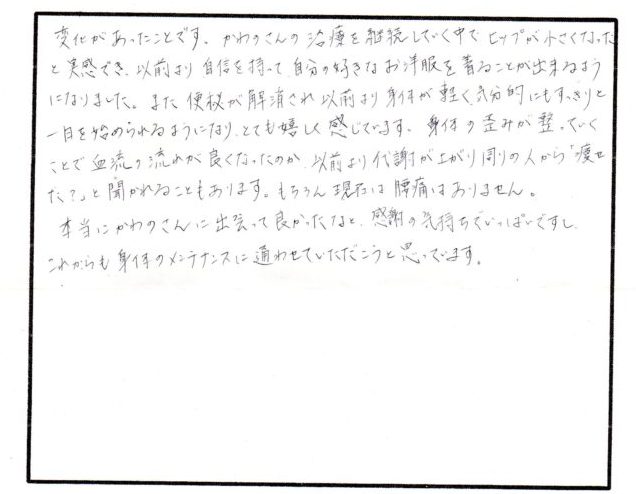 変化があったことです。かわのさんの治療を継続していく中でヒップが小さくなった
と実感でき、以前より自信を持って自分の好きなお洋服を着ることが出来るよう
になりました。また便秘が解消され以前より身体が軽く気分的にもすっきりと
一日を始められるようになり、とても嬉しく感じています。身体の歪みが整っていく
ことで血流の流れが良くなったのか、以前より代謝が上がり周りの人から「痩せ
た?」と聞かれることもあります。もちろん現在は腰痛はありません。
本当にかわのさんに出会って良かったなと、感謝の気持ちでいっぱいですし、
これからも身体のメンテナンスに通わせていただこうと思っています。